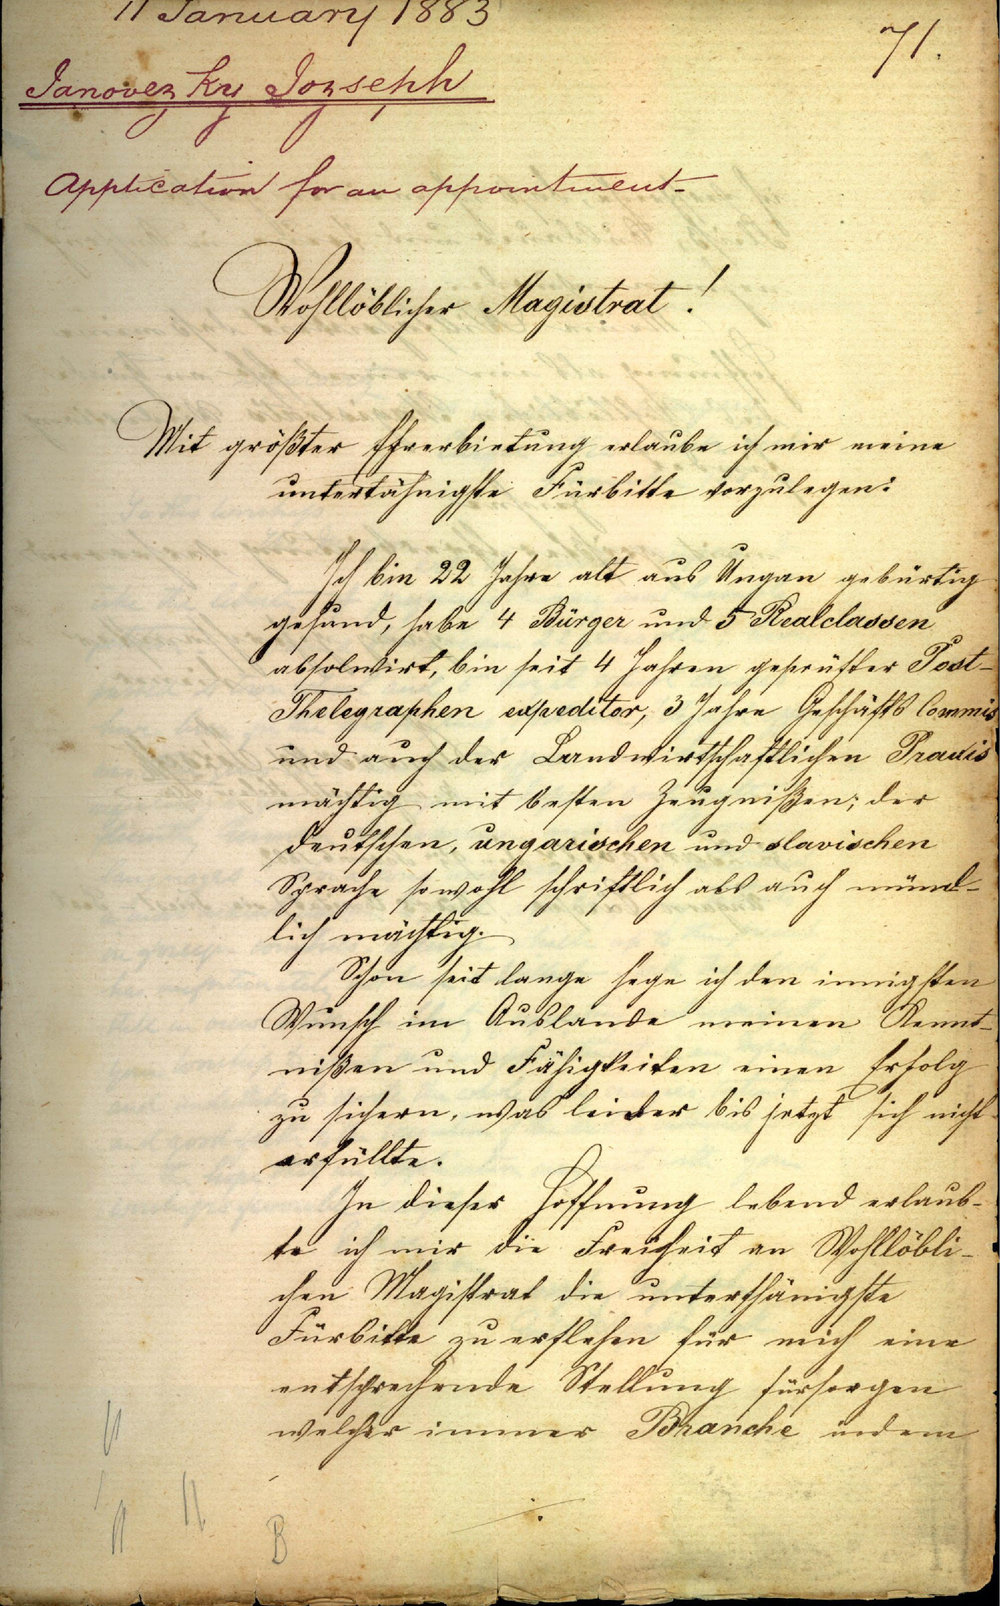 11 January 1883
71.
Janovezky Jozseph
Application for an appointment-
Wohllöblicher Magistrat!
Mit größter Ehrerbietung erlaube ich mir meine
untertähnigste Fürbitte vorzulegen:
Ich bin 22 Jahre alt aus Ungan gebürtig
gesund, habe 4 Bürger und 5 Realclassen
absolwirt, bin seit 4 Jahren geprüfter Post-
Thelegraphen expeditor, 3 Jahre Geschäfts Commis
und auch der Landwirtschaftlichen Praxis
mächtig mit besten Zeugnißen; der
deutschen, ungarischen und slavischen
Sprache sowohl schriftlich als auch münd-
lich mächtig.
Schon seit lange hege ich den innigsten
Wunsch im Auslande meinen Kennt-
nißen und Fähigkeiten einen Erfolg
zu sichern, was leider bis jetzt sich nicht
erfüllte.
In dieser Hoffnung lebend erlaub-
te ich mir die Freiheit an Wohllöbli-
chen Magistrat die unterthänigste
Fürbitte zu erflehen für mich eine
entsprechende Stellung fürsorgen
welcher immer Branche indem
B